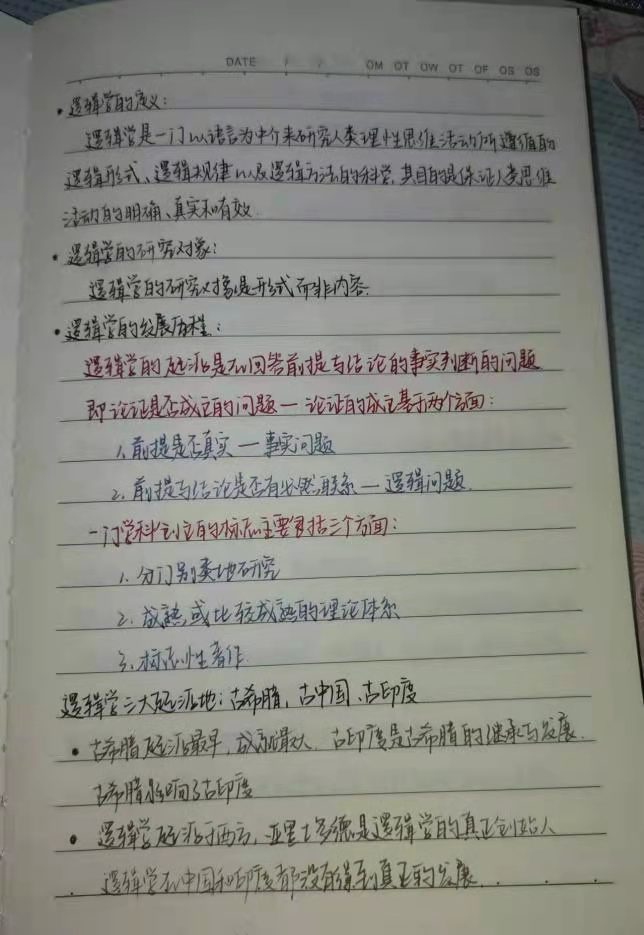 DATE / / OM OT OW OT OF OS OS
• 逻辑学的定义:
逻辑学是一门以语言为中介来研究人类理性思维活动所遵循的
逻辑形式、逻辑规律以及逻辑方法的科学,其目的是保证人类思维
活动的明确、真实和有效.
• 逻辑学的研究对象:
逻辑学的研究对象是形式而非内容.
• 逻辑学的发展历程:
逻辑学的起源是在回答前提与结论的事实判断的问题
即论证是否成立的问题—论证的成立基于两个方面:
1.前提是否真实—事实问题
2.前提与结论是否有必然联系—逻辑问题.
一门学科创立的标志主要包括三个方面:
1.分门别类地研究
2.成熟或比较成熟的理论体系
3.标志性著作.
逻辑学三大起源地:古希腊,古中国、古印度
• 古希腊起源最早,成就最大.古印度是古希腊的继承与发展.
古希腊影响了古印度
• 逻辑学起源于西方,亚里士多德是逻辑学的真正创始人
逻辑学在中国和印度都没有得到真正的发展.